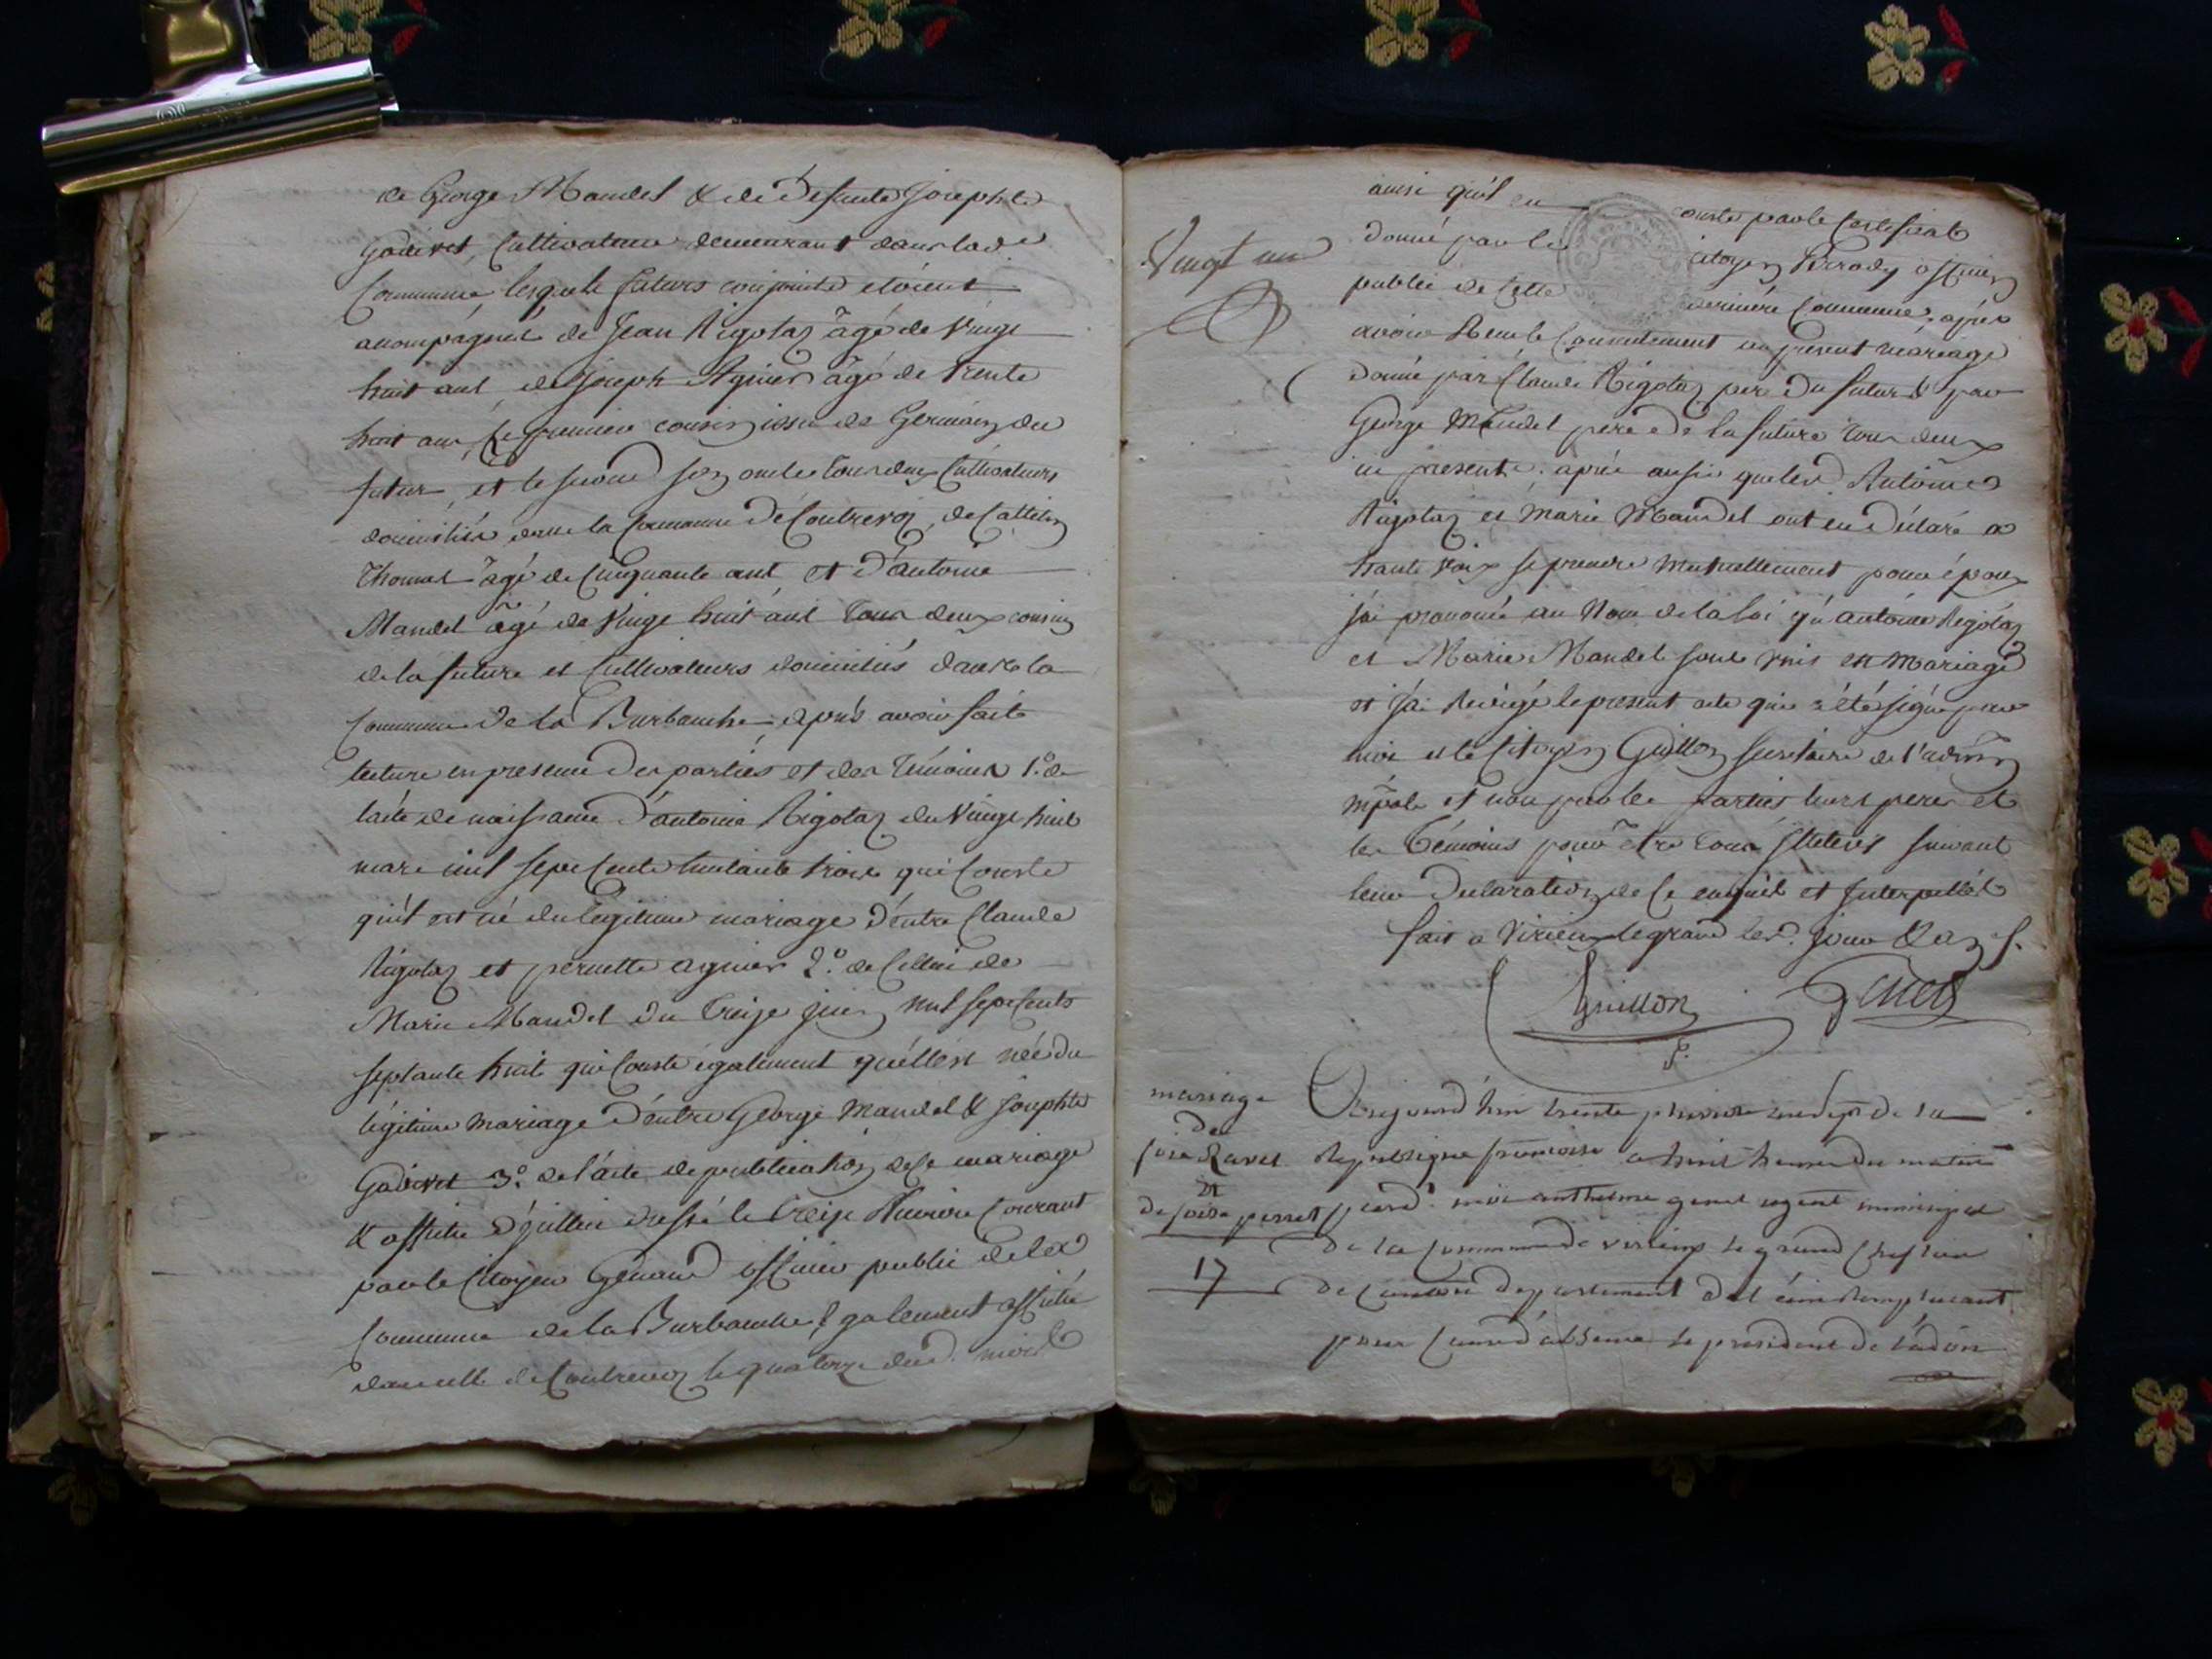 de George Mandel & de defunte Josephte
Godivet, Cultivateur demeurant dans lad.e
Commune lesquels futurs conjoints etoient
acompagnés de Jean Rigolaz âgé de Vingt
huit ans, de Joseph Aguier âgé de trente
huit ans, le premier cousin issu de Germain du
futur, et le second son oncle tous deux Cultivateurs
domiciliés dans la Commune de Contrevoz, de
Thomas âgé de Cinquante ans et d'antoine
Mandel âgé de Vingt huit ans tous deux cousins
de la future et Cultivateurs domiciliés dans la
Commune de la Burbanche, après avoir fait
lecture en presence des parties et des témoins 1.o de
l'acte de naissance d'antoine Rigolaz du Vingt huit
mars mil sept Cents trois qui Conste
qu'il est né du legitime mariage d'entre Claude
Rigolaz et pernette aguier 2.o de Celui de
Marie Mandel du treize juin mil sept Cents
septante huit qui Conste également qu'elle est née du
légitime mariage d'entre George Mandel & Josephte
Godivet 3.o de l'acte de publication de ce mariage
& affiche d'icelui dressé le treize Courant
par le Citoyen officier public de la
Commune de la Burbanche également affiché
dans celle de Contrevoz le quatorze dud. mois
Vingt un
ainsi qu'il en conste par le Certificat
donné par le citoyen officier
public de Cette derniere Commune, après
avoir Reçu le Consentement au present mariage
donné par Claude Rigolaz pere du futur & par
George Mandel pere de la future tous deux
ici presents; après aussi que lesd Antoine
Rigolaz et Marie Mandel ont eu déclaré a
haute voix se prendre Mutuellement pour époux
j'ai prononcé au Nom de la loi qu'antoine Rigolaz
et Marie Mandel sont unis en Mariage
et j'ai Redigé le present acte qui a été signé par
moi et le Citoyen Guillon secretaire de l'admon
mpale et non par les parties leurs peres et
les témoins pour être tous illeteres suivant
leur declaration de ce enquis et Interpellés
fait a Virieu le grand lesd. jour & an f.
Guillon Genet
mariage
de
Ravet
et
de perret
17
Aujourd'hui trente pluviose de la
Republique francoise a huit heures du matin
pard. moi anthelme genet agent municipal
de la Commune de virieux le grand Chef lieu
de Canton departement de l'ain Remplacant
pour Cause d'absence le president de l'adon